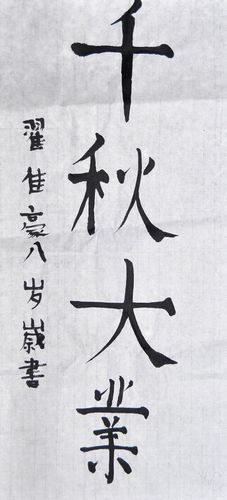 千秋大业
翟佳豪八岁嵗書